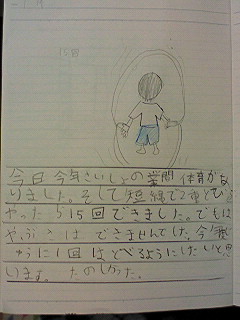 15回
今日今年さいしょの業間体育があ
りました。そして短縄で2重とびを
やったら15回できました。でもは
やぶさはできませんでした。今年
じゅうに1回はとべるようにしたいと思
います。たのしかった。